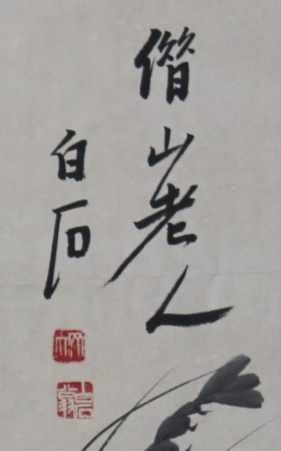 借山老人
白石